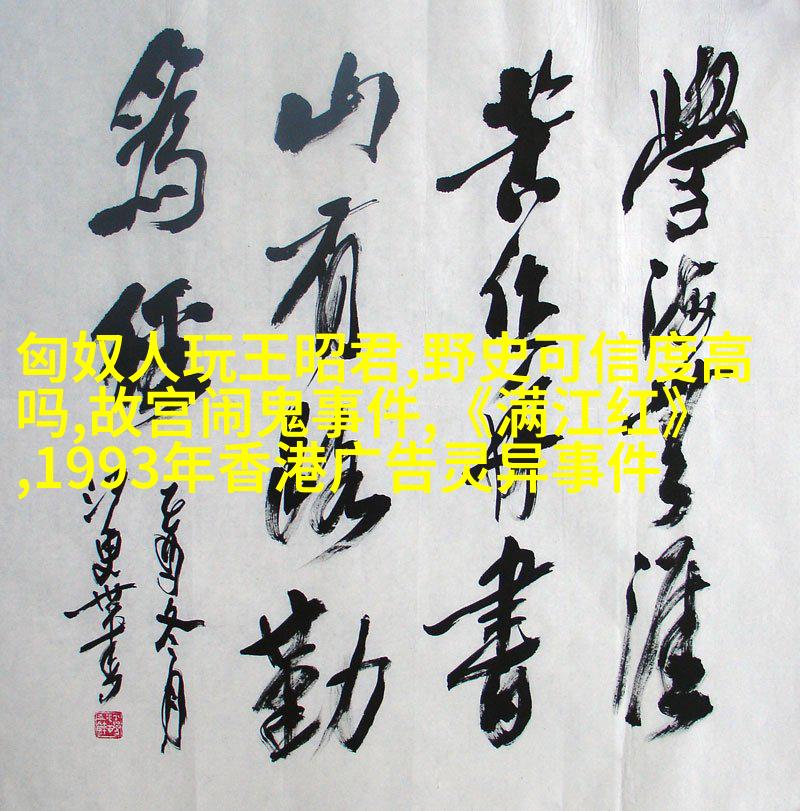 匈奴人玩王昭君,野史可信度高
吗,故宫闹鬼事件,《满江红》
,1993年香港广告灵异事件
學海無涯
苦作舟書
山有路勤
為徑
酉冬月